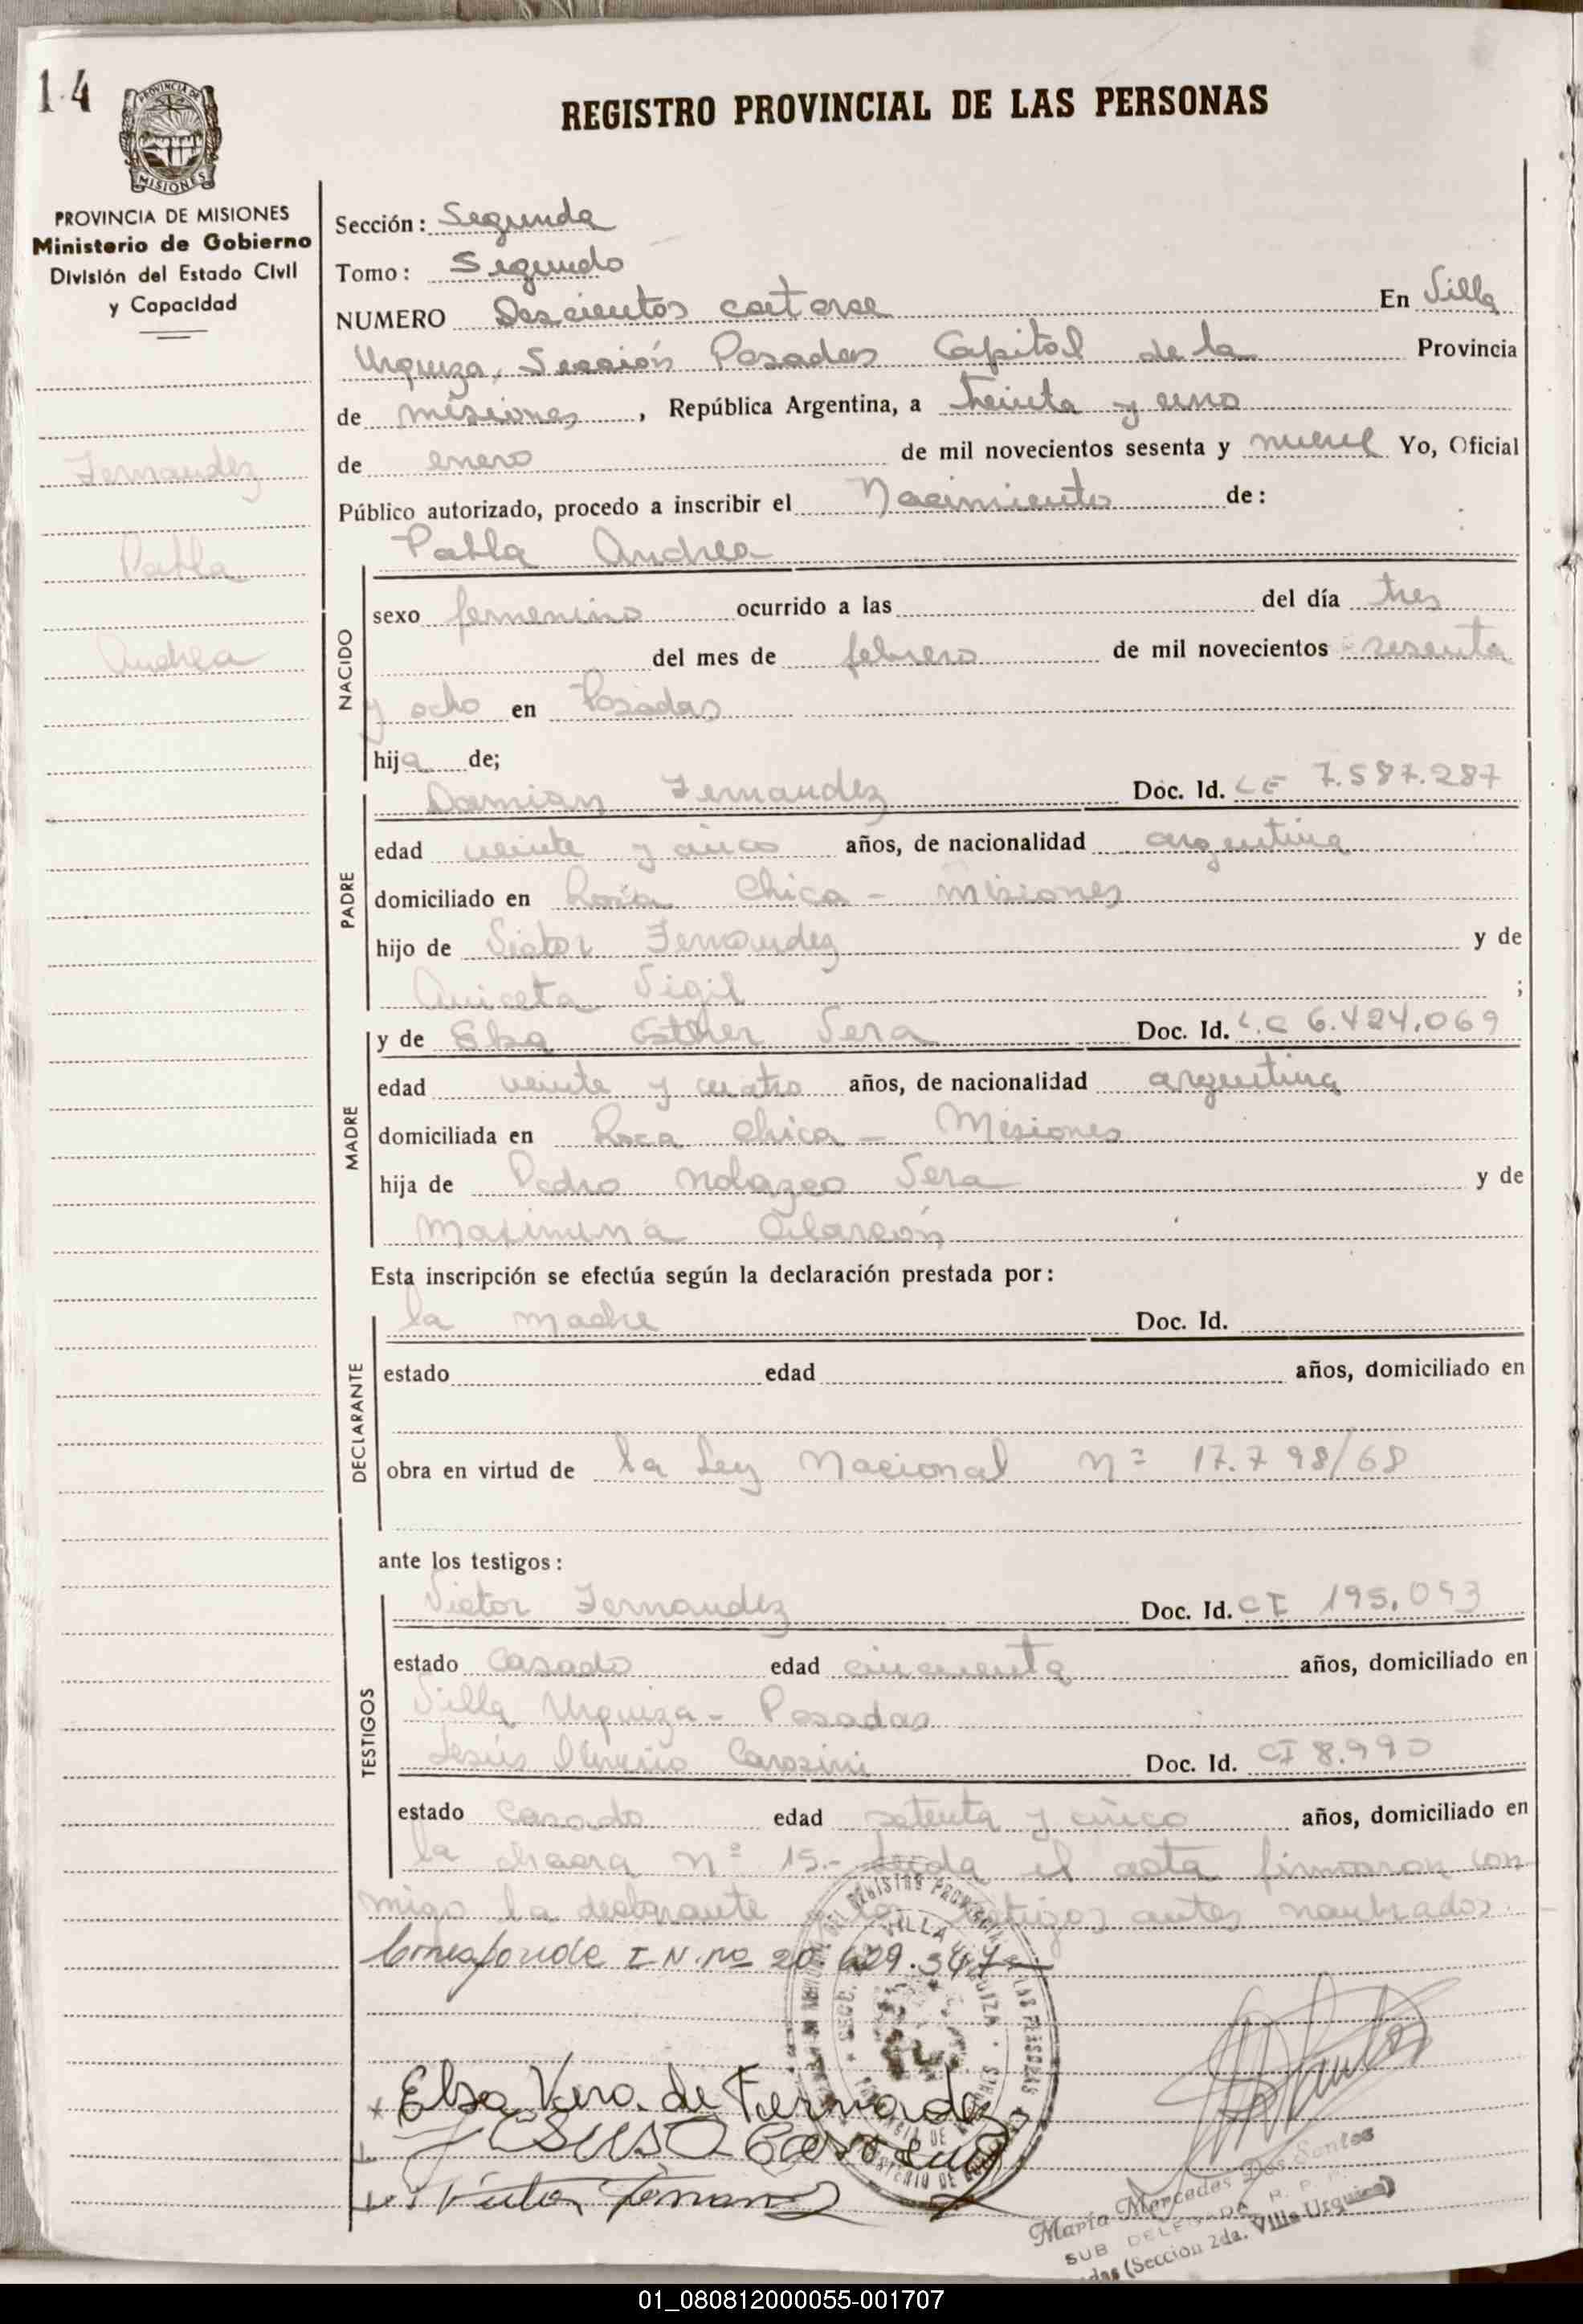 14
PROVINCIA DE
MISIONES
PROVINCIA DE MISIONES
Ministerio de Gobierno
División del Estado Civil
y Capacidad
Fernandez
Pabla
Andrea
REGISTRO PROVINCIAL DE LAS PERSONAS
Sección: Segunda
Tomo: Segundo
NUMERO Doscientos catorse En Villa
Urquiza, Sección Posadas Capital de la Provincia
de misiones, República Argentina, a treinta y uno
de enero de mil novecientos sesenta y nueve Yo, Oficial
Público autorizado, procedo a inscribir el Nacimiento de:
Pabla Andrea
NACIDO
sexo femenino ocurrido a las del día tres
del mes de febrero de mil novecientos sesenta
y ocho en Posadas
hija de;
PADRE
Damian Fernandez Doc. Id. LE 7.587.287
edad veinte y cinco años, de nacionalidad argentina
domiciliado en Roca Chica - misiones
hijo de Victor Fernandez y de
Aniceta Vigil ;
MADRE
y de Elsa Esther Vera Doc. Id. L.C 6.424.069
edad veinte y cuatro años, de nacionalidad argentina
domiciliada en Roca chica - Misiones
hija de Pedro Nolazco Vera y de
Maximina Alarcón
Esta inscripción se efectúa según la declaración prestada por:
DECLARANTE
la madre Doc. Id.
estado edad años, domiciliado en
obra en virtud de la Ley Nacional nº 17.798/68
ante los testigos:
TESTIGOS
Victor Fernandez Doc. Id. CI 195.093
estado Casado edad cincuenta años, domiciliado en
Villa Urquiza - Posadas
Jesús Carozini Doc. Id. CI 8.990
estado casado edad setenta y cinco años, domiciliado en
la chacra nº 15.- Leida el acta firmaron con
migo la declarante y los testigos antes nombrados.
Corresponde I N. no 20.629.347
Elsa Vera de Fernandez
Victor Fernandez
Maria Mercedes Dos Santos
SUB DELEGADA R. P. P.
(Seccion 2da. Villa Urquiza)
01_080812000055-001707